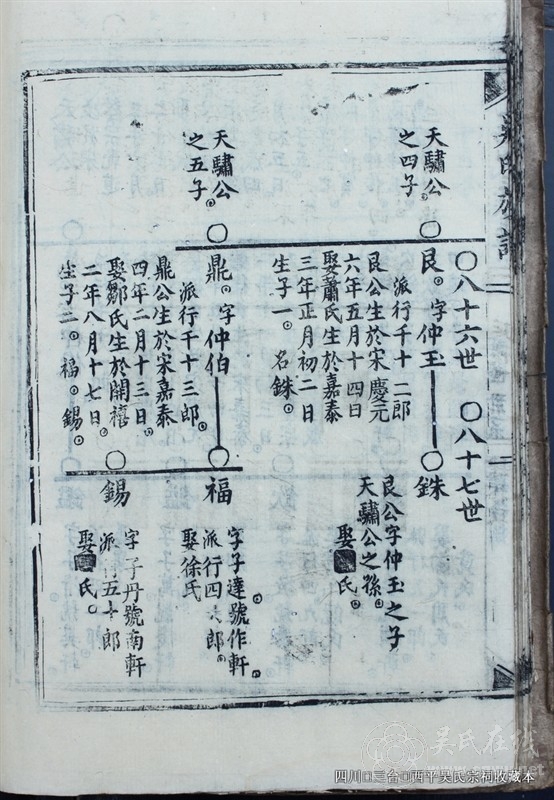 吳氏族譜
〇八十六世
〇八十七世
天驌公
之四子。
艮。字仲玉
派行千十二郎
艮公生於宋慶元
六年五月十四日
娶蕭氏生於嘉泰
三年正月初二日
生子一。名銖。
銖
艮公字仲玉之子
天驌公之孫。
娶氏。
天驌公
之五子。
鼎。字仲伯
派行千十三郎。
鼎公生於宋嘉泰
四年二月十三日。
娶鄒氏生於開禧
二年八月十七日。
生子二。福。錫。
福
字子達號作軒。
派行四郎。
娶徐氏
錫
字子丹號南軒
派行五十郎
娶氏。
吳氏在线
www.cnwu.net
四川□三台□西平吴氏宗祠收藏本